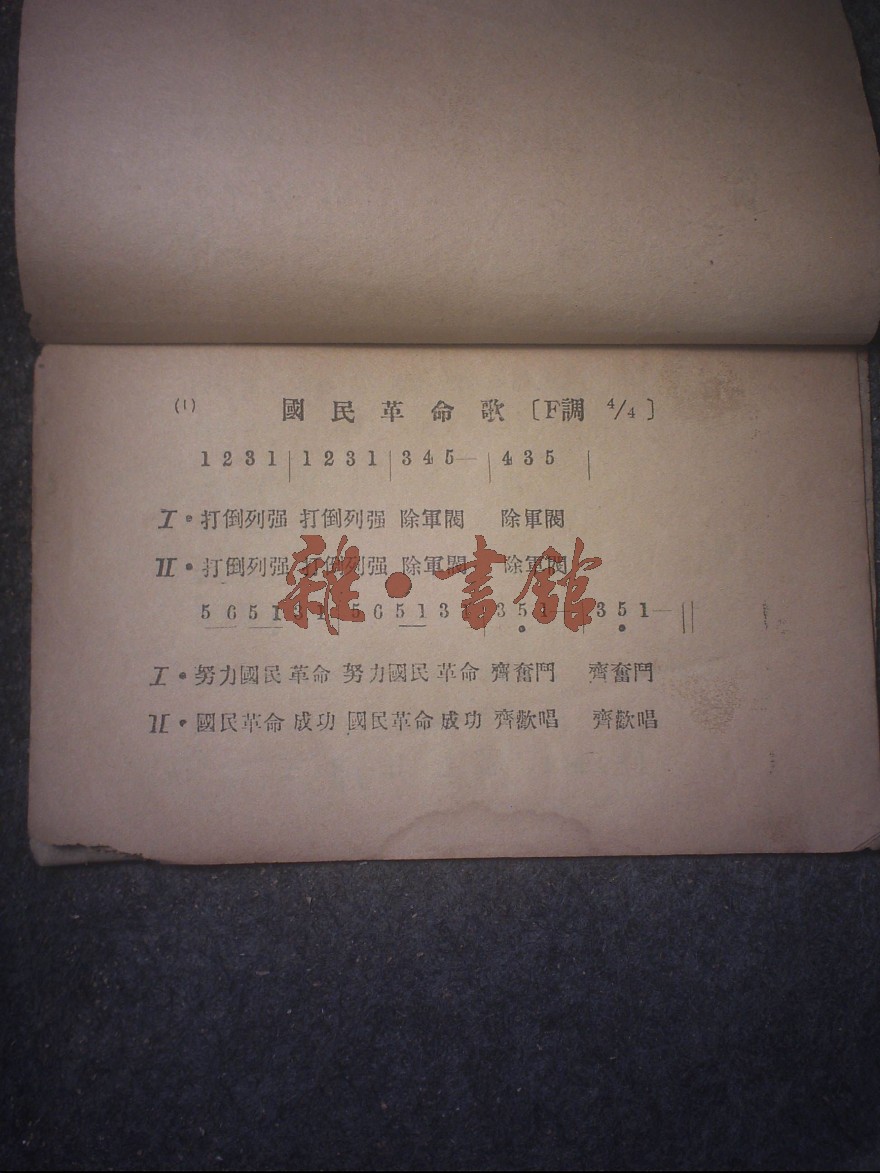 (1) 國民革命歌〔F調 4/4〕
1 2 3 1 | 1 2 3 1 | 3 4 5— | 4 3 5 |
I•打倒列强 打倒列强 除軍閥 除軍閥
II•打倒列强 打倒列强 除軍閥 除軍閥
雜·書館
5 6 5 1 3 1 5 6 5 1 3 | 3 5 1— | 3 5 1— ||
I•努力國民革命 努力國民革命 齊奮鬥 齊奮鬥
II•國民革命成功 國民革命成功 齊歡唱 齊歡唱